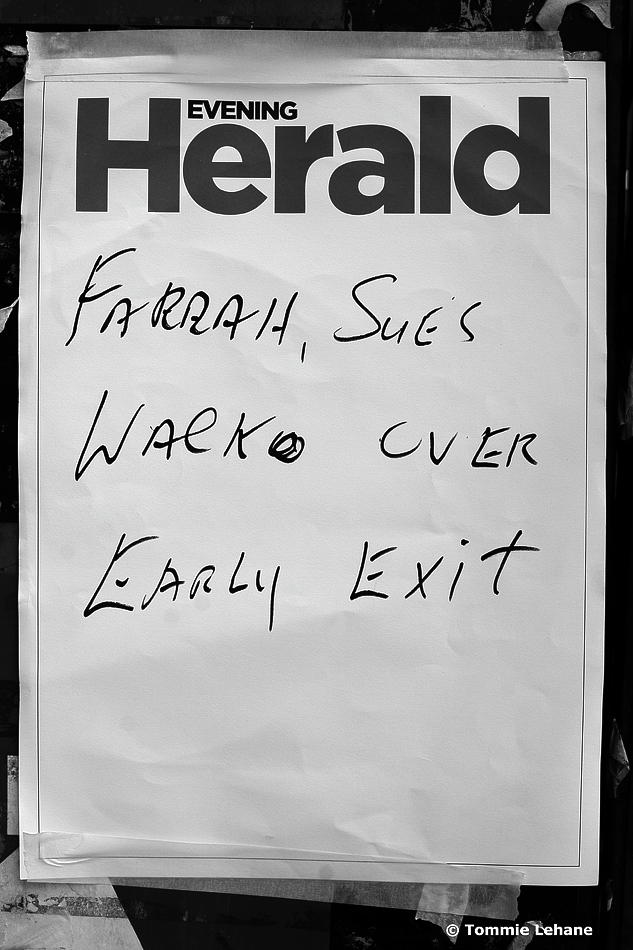 EVENING
Herald
FARRAH, SUE'S
WALK OVER
EARLY EXIT
© Tommie Lehane